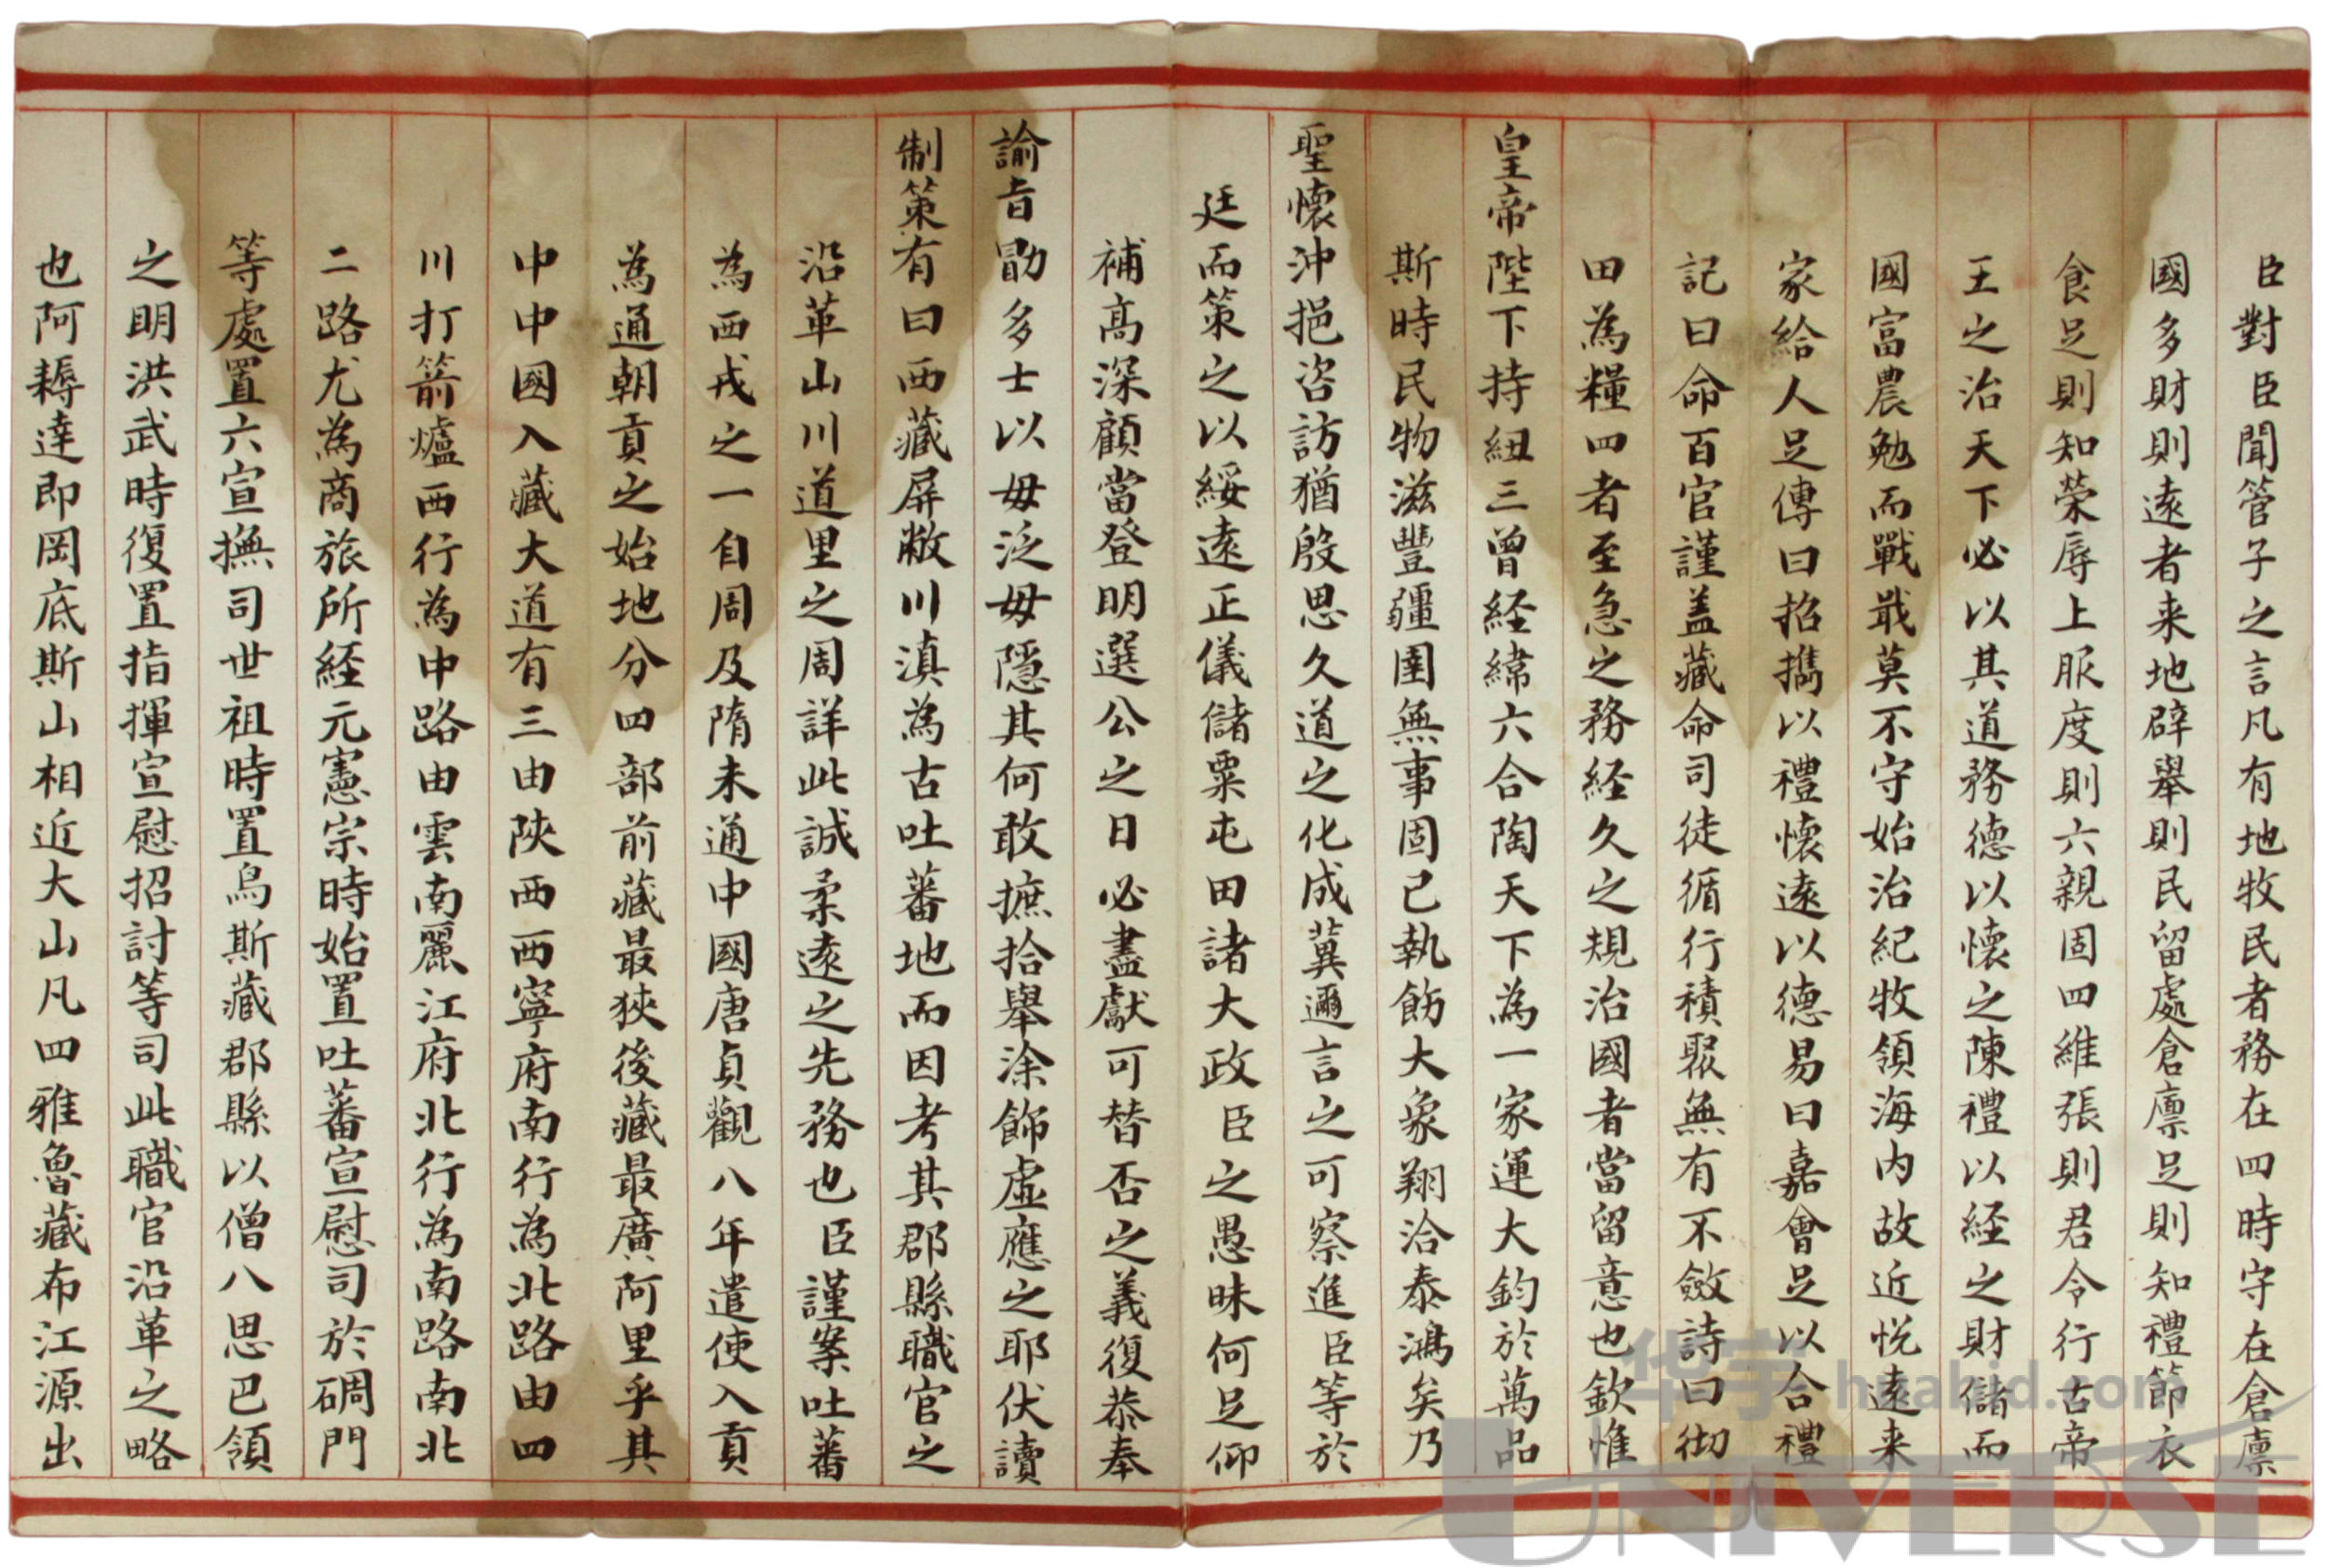 臣對臣聞管子之言凡有地牧民者務在四時守在倉廩
國多財則遠者来地辟舉則民留處倉廩足則知禮節衣
食足則知荣辱上服度則六親固四維張則君令行古帝
王之治天下必以其道務德以懷之陳禮以経之財儲而
國富農勉而戰戢莫不守始治紀牧領海内故近悦遠来
家給人足傳曰招攜以禮懷遠以德易曰嘉會足以合禮
記曰命百官謹盖藏命司徒循行積聚無有不斂詩曰彻
田為糧四者至急之務経久之規治國者當留意也欽惟
皇帝陛下持紐三曾経緯六合陶天下為一家運大鈞於萬品
斯時民物滋豐疆圉無事固已執飭大象翔洽泰鴻矣乃
聖懷沖挹咨訪猶殷思久道之化成冀邇言之可察進臣等於
廷而策之以綏遠正儀儲粟屯田諸大政臣之愚昧何足仰
補高深顧當登明選公之日必盡獻可替否之義復恭奉
諭旨勖多士以毋泛毋隱其何敢摭拾舉涂飾虛應之耶伏讀
制策有曰西藏屏敝川滇為古吐蕃地而因考其郡縣職官之
沿革山川道里之周詳此誠柔遠之先務也臣謹案吐蕃
為西戎之一自周及隋未通中國唐貞觀八年遣使入貢
為通朝貢之始地分四部前藏最狹後藏最廣阿里乎其
中中國入藏大道有三由陝西西寧府南行為北路由四
川打箭爐西行為中路由雲南麗江府北行為南路南北
二路尤為商旅所経元憲宗時始置吐蕃宣慰司於碉門
等處置六宣撫司世祖時置烏斯藏郡縣以僧八思巴領
之明洪武時復置指揮宣慰招討等司此職官沿革之略
也阿耨達即岡底斯山相近大山凡四雅魯藏布江源出
华宇 huabid.com
UNIVERSE